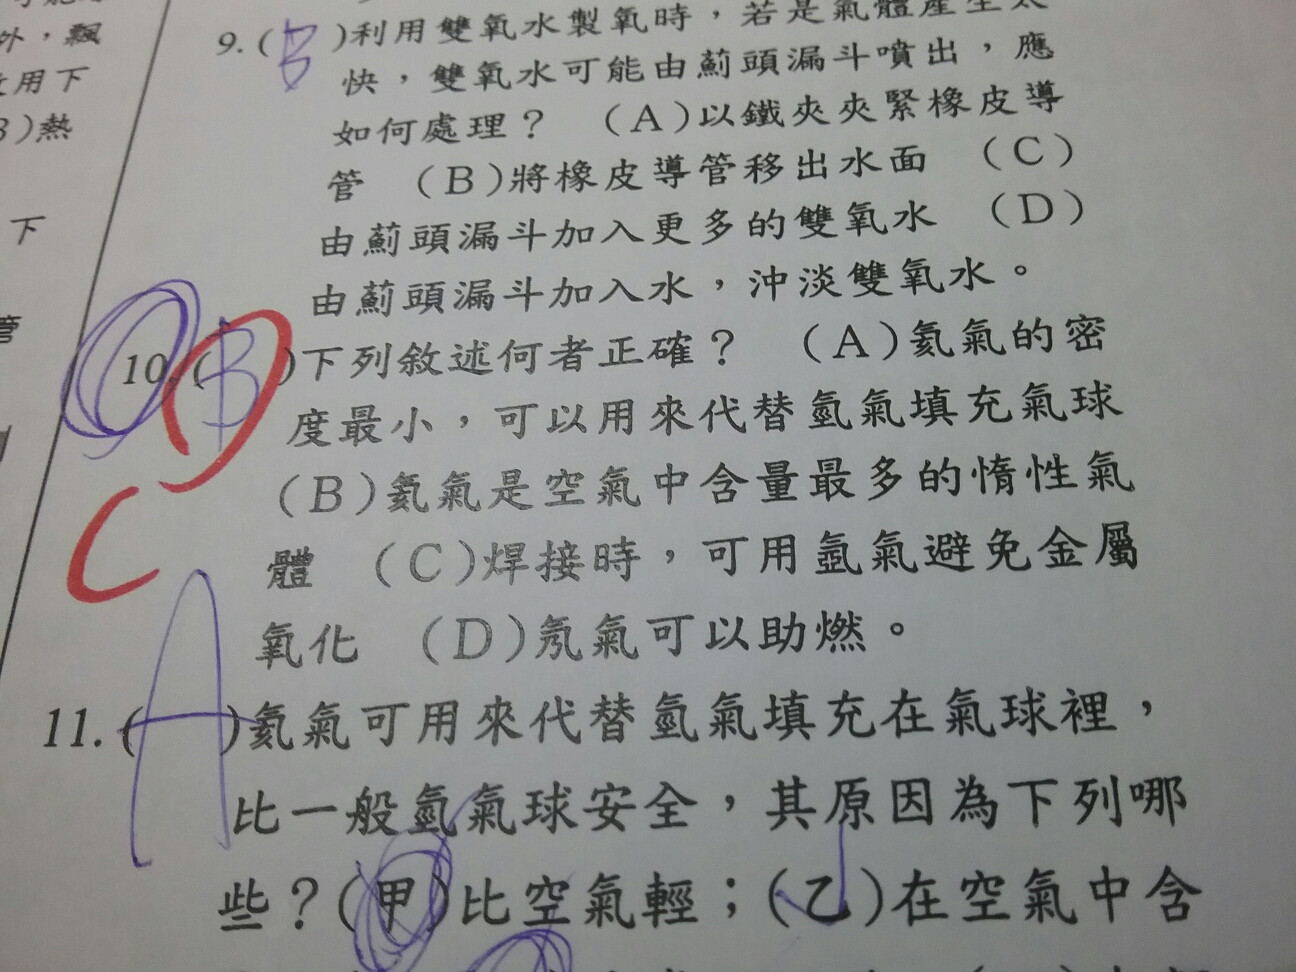 外，飄
用下
)熱
下
管
9. ( B )利用雙氧水製氧時，若是氣體產生太
快，雙氧水可能由薊頭漏斗噴出，應
如何處理？ (A)以鐵夾夾緊橡皮導
管 (B)將橡皮導管移出水面 (C)
由薊頭漏斗加入更多的雙氧水 (D)
由薊頭漏斗加入水，沖淡雙氧水。
10. ( B )下列敘述何者正確？ (A)氦氣的密
度最小，可以用來代替氫氣填充氣球
(B)氦氣是空氣中含量最多的惰性氣
體 (C)焊接時，可用氬氣避免金屬
氧化 (D)氖氣可以助燃。
C
11. ( A )氦氣可用來代替氫氣填充在氣球裡，
比一般氫氣球安全，其原因為下列哪
些？(甲)比空氣輕；(乙)在空氣中含